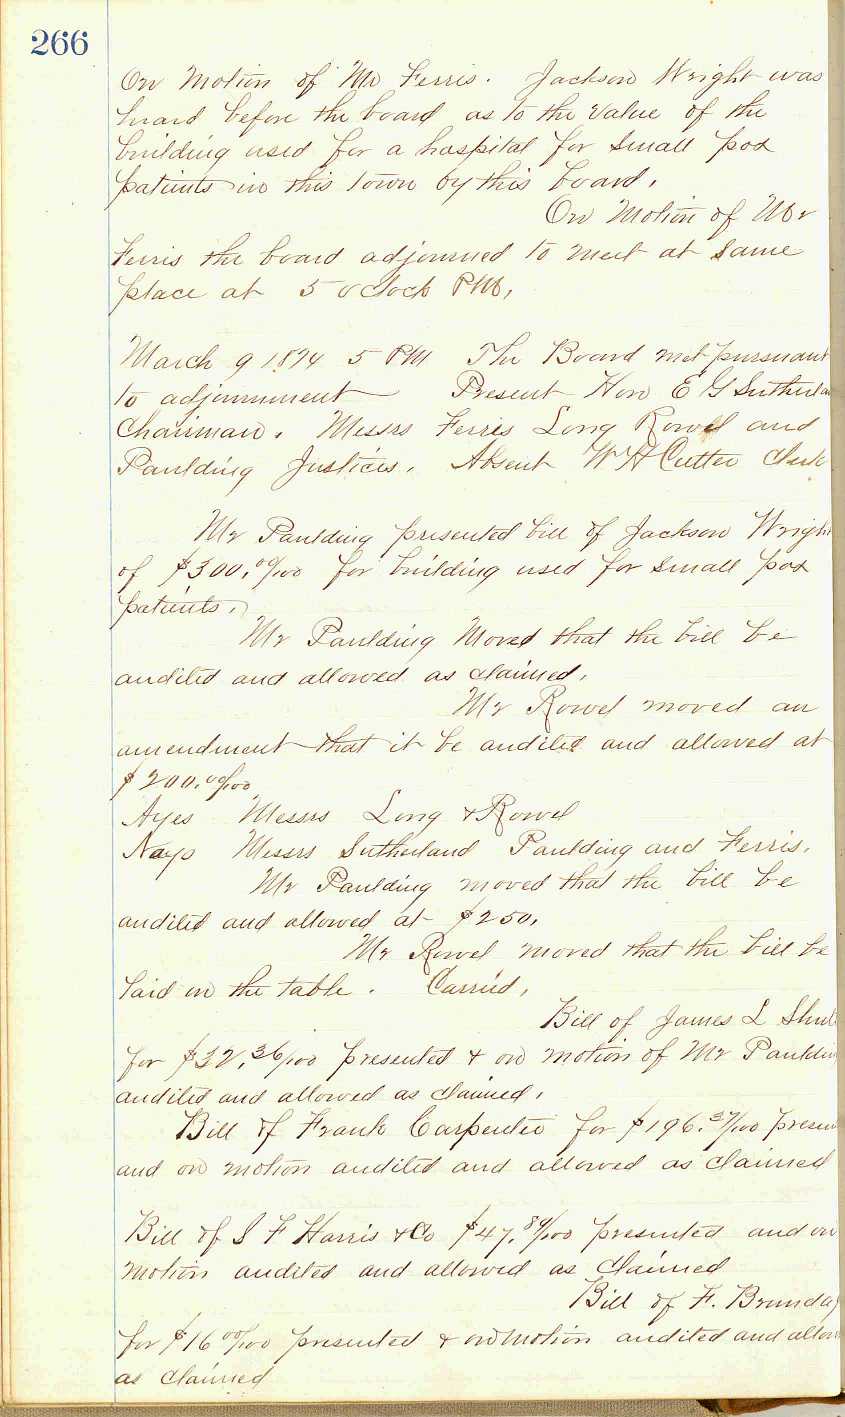 266
On Motion of Mr Ferris. Jackson Wright was
heard before the board as to the value of the
building used for a hospital for Small pox
patients in this town by this board.
On Motion of Mr
Ferris the board adjourned to meet at Same
place at 5 o clock PM.
March 9 1874 5 PM The Board met pursuant
to adjournment Present Hon E G Sutherla
Chairman. Messrs Ferris Long Rowel and
Paulding Justices. Absent W H Cutter Clerk
Mr Paulding presented bill of Jackson Wrigh
of $300.00/100 for building used for Small pox
patients.
Mr Paulding Moved that the bill be
audited and allowed as claimed.
Mr Rowel moved an
amendment that it be audited and allowed at
$200.00/100
Ayes Messrs Long & Rowel
Nays Messrs Sutherland Paulding and Ferris.
Mr Paulding moved that the bill be
audited and allowed at $250.
Mr Rowel moved that the bill be
laid on the table. Carried.
Bill of James L
for $32.36/100 presented & on motion of Mr Pauldin
audited and allowed as claimed.
Bill of Frank Carpenter for $196.37/100 presen
and on motion audited and allowed as claimed
Bill of S F Harris & Co $47.89/100 presented and on
motion audited and allowed as claimed
Bill of F. Brunda
for $16 00/100 presented & on motion audited and allow
as claimed